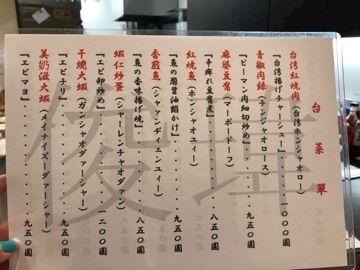 台菜單
台湾红焼肉(台湾ホンシャオロー)
『台湾揚げチャーシュー』・・・・一〇〇〇圓
青椒肉絲(チンジャオロース)
『ピーマン肉細切り炒め』・・・・九五〇圓
麻婆豆腐(マーボードーフ)
『辛痺れ豆腐煮』・・・・八五〇圓
红焼魚(ホンシャオユィー)
『魚の葱醤油餡かけ』・・・・九五〇圓
香煎魚(シャアンヂィェンユィー)
『魚の香味揚げ焼』・・・・八五〇圓
蝦仁炒蛋(シャーレンチャオダァン)
『エビ卵炒め』・・・・一二〇〇圓
干燒大蝦(ガンシャオダァーシャー)
『エビチリ』・・・・九五〇圓
美奶滋大蝦(メイナイズーダァーシャー)
『エビマヨ』・・・・九五〇圓
俊華